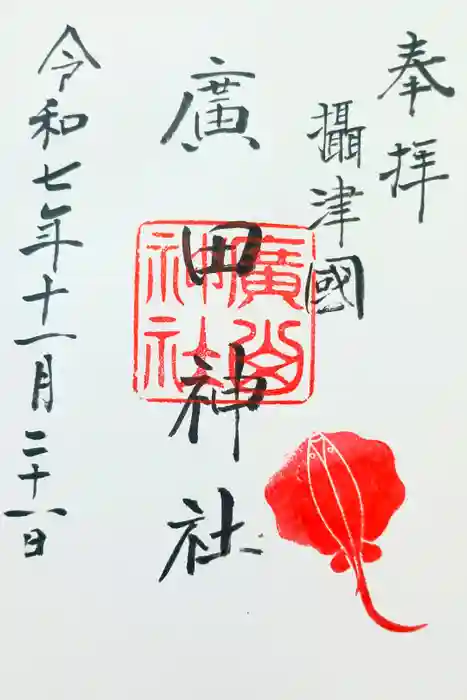 奉拝
攝津國
廣田神社
令和七年十一月二十一日